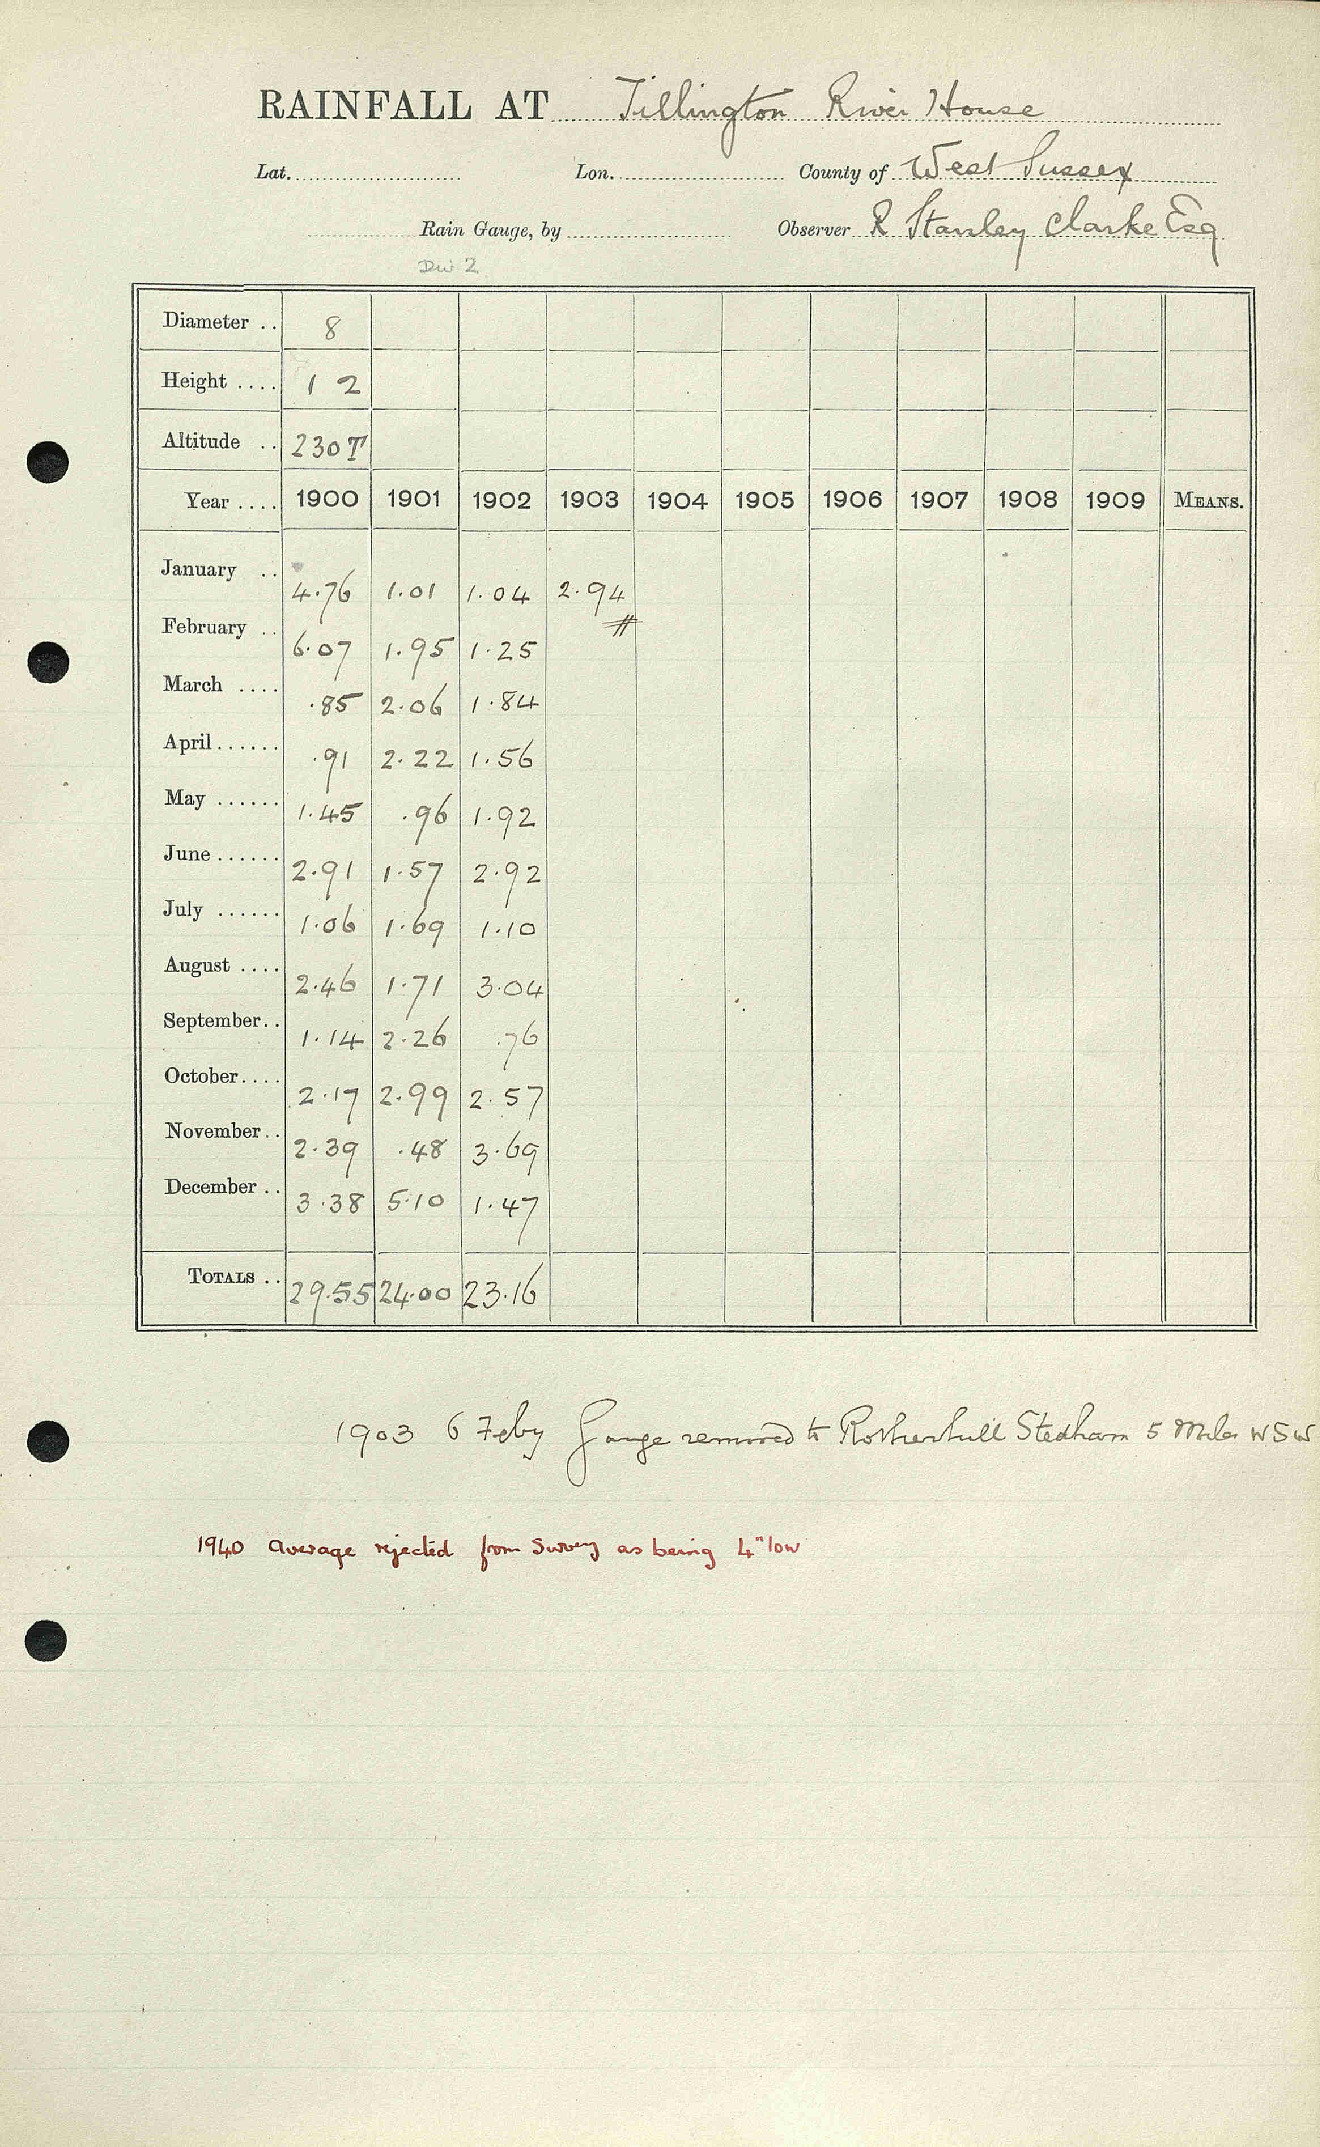 RAINFALL AT Tillington River House
Lat. Lon. County of West Sussex
Rain Gauge, by Observer R Stanley Clarke Esq
DW 2
Diameter .. 8
Height .... 1 2
Altitude .. 230T
Year .... 1900 1901 1902 1903 1904 1905 1906 1907 1908 1909 MEANS.
January .. 4.76 1.01 1.04 2.94
February .. 6.07 1.95 1.25 #
March .... .85 2.06 1.84
April ...... .91 2.22 1.56
May ...... 1.45 .96 1.92
June ...... 2.91 1.57 2.92
July ...... 1.06 1.69 1.10
August .... 2.46 1.71 3.04
September .. 1.14 2.26 .76
October .... 2.17 2.99 2.57
November .. 2.39 .48 3.69
December .. 3.38 5.10 1.47
TOTALS .. 29.55 24.00 23.16
1903 6 Feby Gauge removed to Rotherhill Stedham 5 Miles WSW
1940 average rejected from Survey as being 4" low